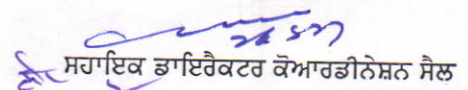 ਸਹਾਇਕ ਡਾਇਰੈਕਟਰ ਕੋਆਰਡੀਨੇਸ਼ਨ ਸੈਲ